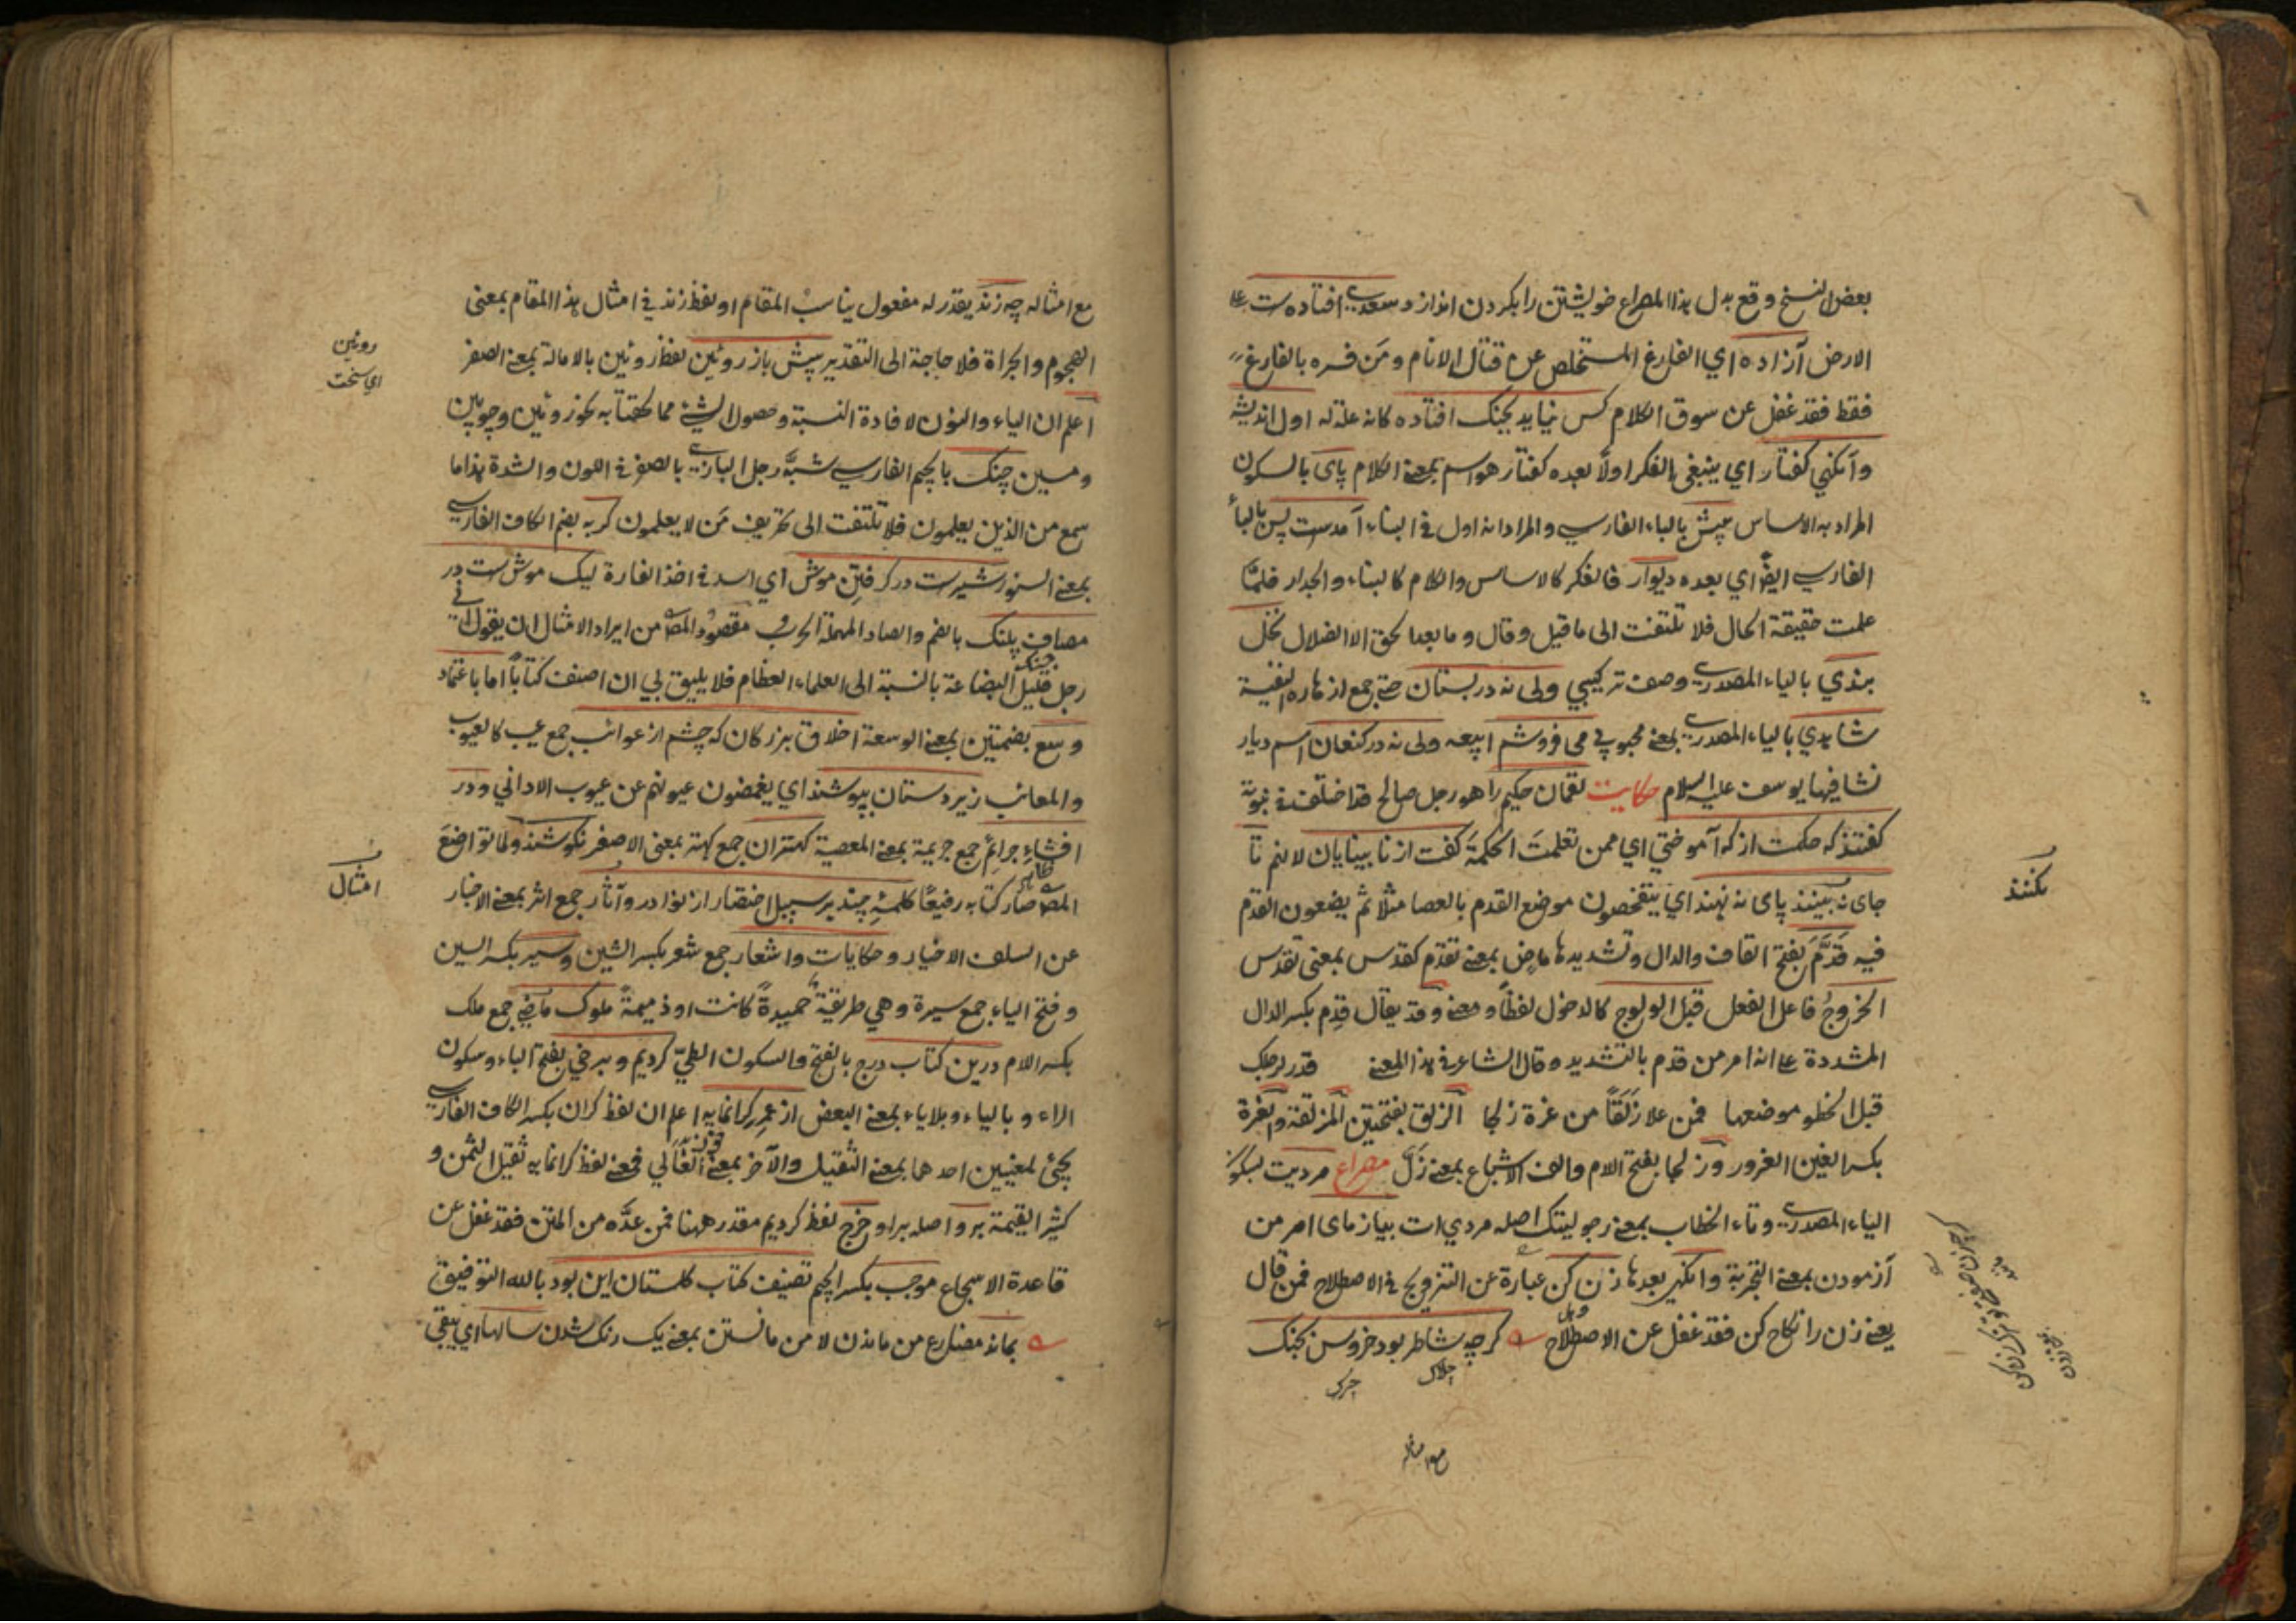 بعض النسخ وقع بدل هذا المصراع خويشتن را بكردن انداز و سعدي افتاده ست علي
الارض آزاده اي الفارغ المستخلص عن قتال الانام ومن فسره بالفارغ
فقط فقد غفل عن سوق الكلام كس نيايد بجنك افتاده كانه علة له اول انديشه
وآنكهي كفتار اي ينبغي الفكر اولا بعده كفتار هو اسم بمعنى الكلام پاى بالسكون
المراد به الاساس پيش بالباء الفارسي والمراد انه اول في البناء آمدست پس بالباء
الفارسي ايضا اي بعده ديوار فالفكر كالاساس والكلام كالبناء والجدار فلما
علمت حقيقة الحال فلا تلتفت الى ما قيل وقال وما بعد الحق الا الضلال نخل
بندي بالياء المصدري وصف تركيبي ولى نه در بستان جمع از هاره
شاهدي بالياء المصدري بمعنى محبوبي مى فروشم ابيعه ولى نه در كنعان اسم ديار
نشا فيها يوسف عليه السلام حكايت لقمان حكيم را هو رجل صالح قد اختلف في نبوته
كفتند كه حكمت از كه آموختي اي ممن تعلمت الحكمة كفت از نا بينايان لانهم تا
جاى نه بينند پاى نه نهند اي يتفحصون موضع القدم بالعصا مثلا ثم يضعون القدم
فيه قدم بفتح القاف والدال وتشديدها ماض بمعنى تقدم كقدس بمعنى تقدس
الخروج فاعل الفعل قبل الولوج كالدخول لفظا ومعنى وقد يقال قدم بكسر الدال
المشددة علي انه امر من قدم بالتشديد وقال الشاعر في هذا المعنى قدر لرجلك
قبل الخطو موضعها فمن علا زلقا من غرة زلجا الزلق بفتحتين المزلقة والغرة
بكسر الغين الغرور وزلجا بفتح اللام والف الاشباع بمعنى زل مصراع مرديت بسكون
الياء المصدري وتاء الخطاب بمعنى رجوليتك اصله مردي ات بيازماى امر من
آزمودن بمعنى التجربة وانكهي بعدها زن كن عبارة عن التزويج في الاصطلاح فمن قال
يعنى زن را نكاح كن فقد غفل عن الاصطلاح كرچه شاطر بود خروس بجنك
چالاك
بكنند
مع امثاله چه زند يقدر له مفعول يناسب المقام او لفظ زند في امثال هذا المقام بمعنى
الهجوم والجراة فلا حاجة الى التقدير پيش باز روئين لفظ روئين بالامالة بمعنى الصفر
اعلم ان الياء والنون لافادة النسبة وحصول الشئ مما لحقتا به نحو روئين وچوبين
ومسين چنك بالجيم الفارسي شبه رجل البازي بالصفر في اللون والشدة هذا ما
سمع من الذين يعلمون فلا تلتفت الى تحريف من لا يعلمون كربه بضم الكاف الفارسي
بمعنى السنور شيرست در كرفتن موش اي اسد في اخذ الفارة ليك موش ست در
مصاف پلنك بالضم والصاد المهملة الحرب مقصود المص من ايراد الامثال ان يقول اني
رجل قليل البضاعة بالنسبة الى العلماء العظام فلا يليق لي ان اصنف كتابا اما باعتماد
وسع بضمتين بمعنى الوسعة اخلاق بزركان كه چشم از عوائب جمع عيب كالعيوب
والمعائب زيردستان بپوشند اي يغمضون عيونهم عن عيوب الاداني ودر
افشاء جرائم جمع جريمة بمعنى المعصية كهتران جمع كهتر بمعنى الاصغر نكوشند ولما تواضع
المص صار كتابه رفيعا كلمه چند بر سبيل اختصار از نوادر وآثار جمع اثر بمعنى الاخبار
عن السلف الاخيار وحكايات واشعار جمع شعر بكسر الشين وسير بكسر السين
وفتح الياء جمع سيرة وهي طريقة حميدة كانت او ذميمة ملوك ماضي جمع ملك
بكسر اللام درين كتاب درج بالفتح والسكون الطي كرديم وبرخي بفتح الباء وسكون
الراء وبالياء وبلا ياء بمعنى البعض از عمر كرانمايه اعلم ان لفظ كران بكسر الكاف الفارسي
يجئ لمعنيين احدهما بمعنى الثقيل والآخر بمعنى الغالي فمعنى لفظ كرانمايه ثقيل الثمن و
كثير القيمة برو اصله براو خرج لفظ كرديم مقدر ههنا فمن عده من المتن فقد غفل عن
قاعدة الاسجاع موجب بكسر الجيم تصنيف كتاب كلستان اين بود بالله التوفيق
بماند مضارع من ماندن لا من مانستن بمعنى يك رنك شدن سالها اي يبقى
روئين
اي سخت
امثال